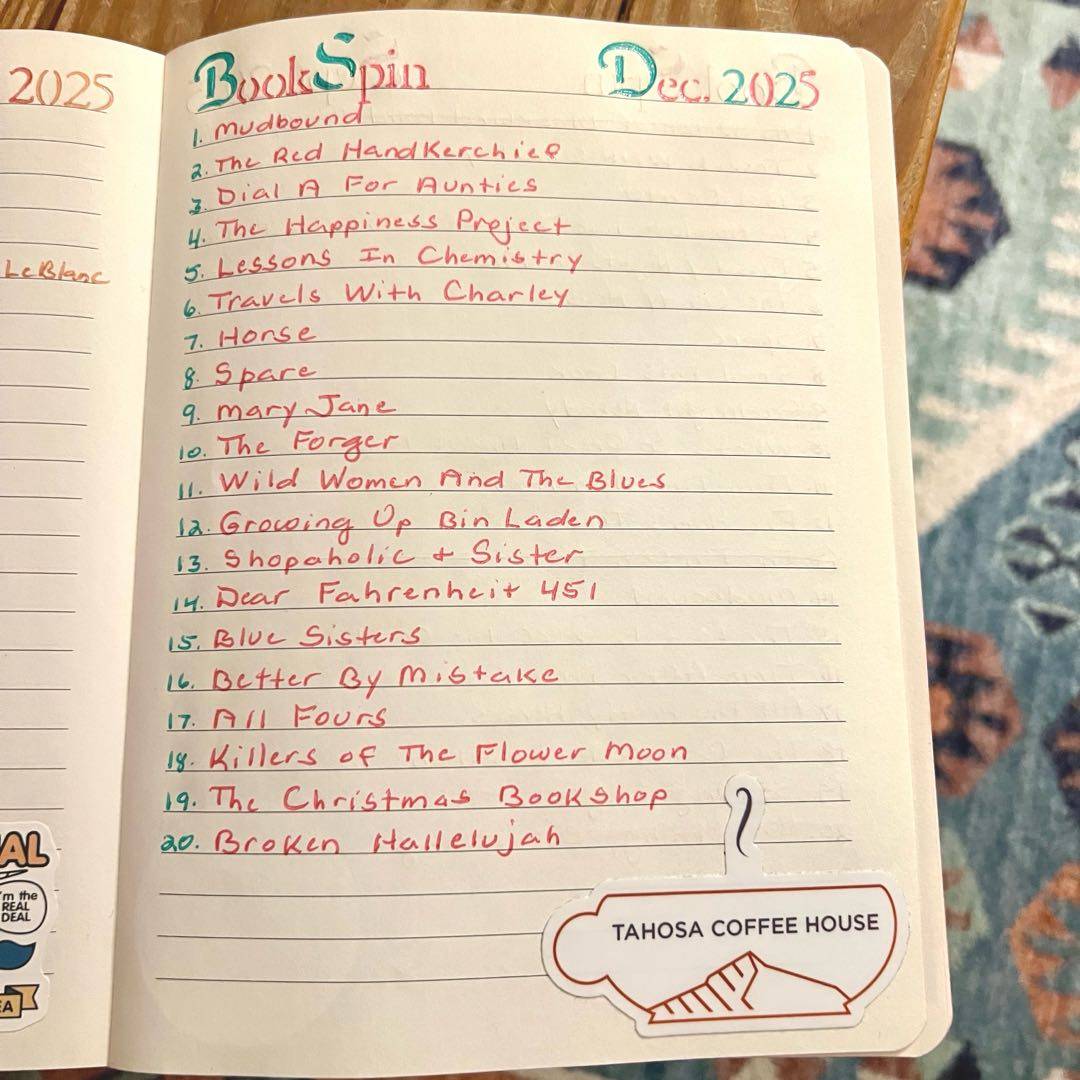 2025
LeBlanc
AL
I'm the
REAL
DEAL
EA
BookSpin Dec. 2025
1. Mudbound
2. The Red Handkerchief
3. Dial A For Aunties
4. The Happiness Project
5. Lessons In Chemistry
6. Travels With Charley
7. Horse
8. Spare
9. Mary Jane
10. The Forger
11. Wild Women And The Blues
12. Growing Up Bin Laden
13. Shopaholic + Sister
14. Dear Fahrenheit 451
15. Blue Sisters
16. Better By Mistake
17. All Fours
18. Killers of The Flower Moon
19. The Christmas Bookshop
20. Broken Hallelujah
TAHOSA COFFEE HOUSE